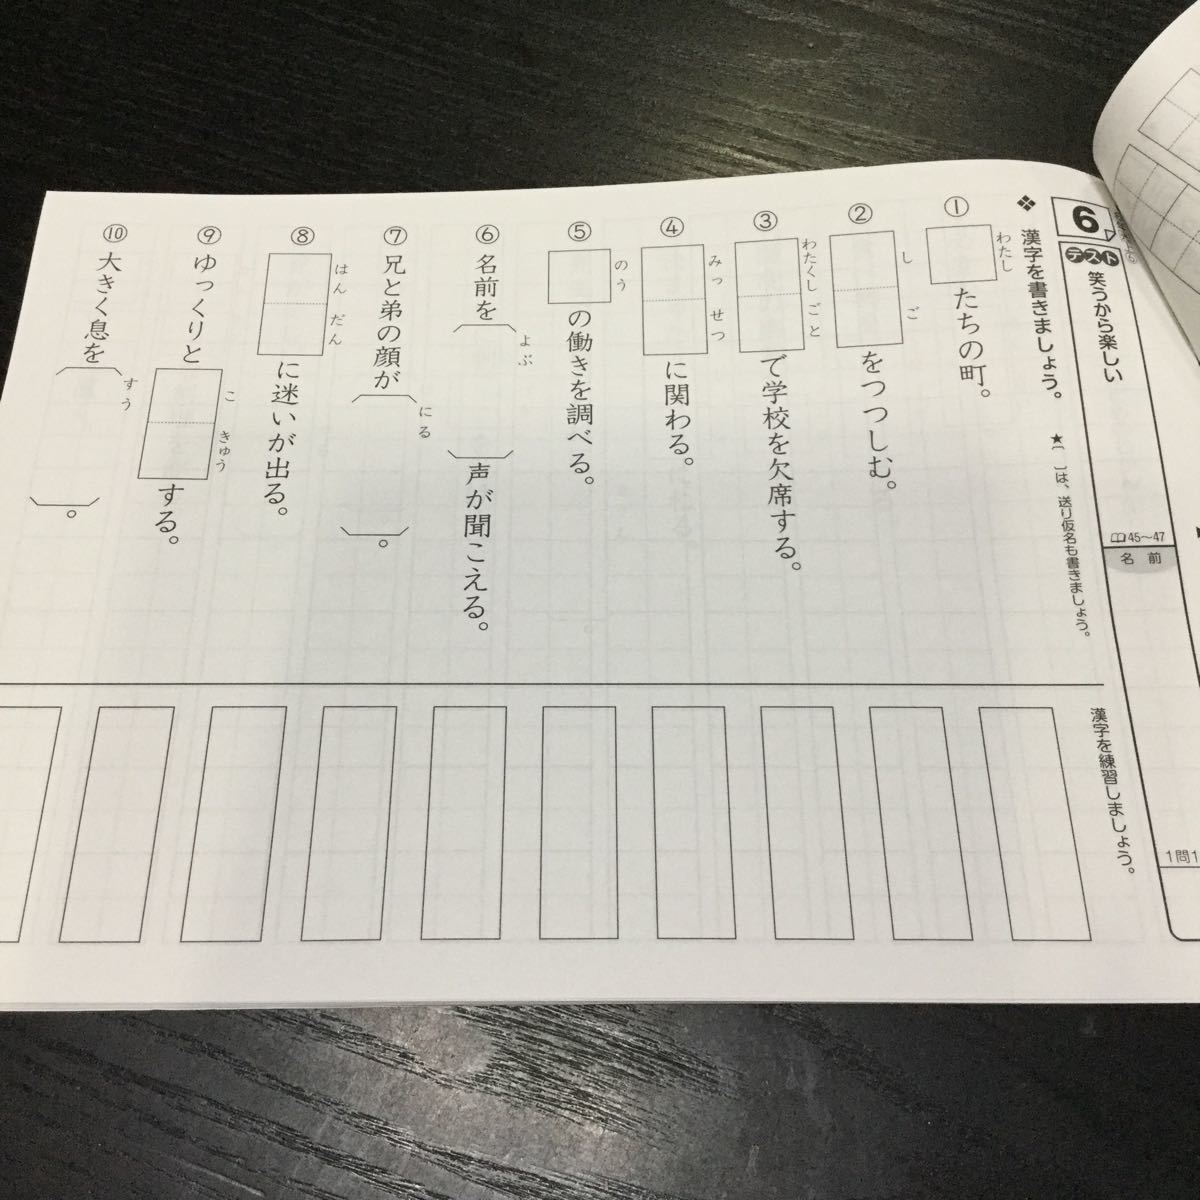 6
テスト
笑うから楽しい
45〜47
名前
1問1
❖ 漢字を書きましょう。
★〔 〕は、送り仮名も書きましょう。
① わたし
たちの町。
② しご
をつつしむ。
③ わたくしごと
で学校を欠席する。
④ みっせつ
に関わる。
⑤ のう
の働きを調べる。
⑥ 名前を〔よぶ〕声が聞こえる。
⑦ 兄と弟の顔が〔にる〕。
⑧ はんだん
に迷いが出る。
⑨ ゆっくりと
こきゅう
する。
⑩ 大きく息を〔すう〕。
漢字を練習しましょう。